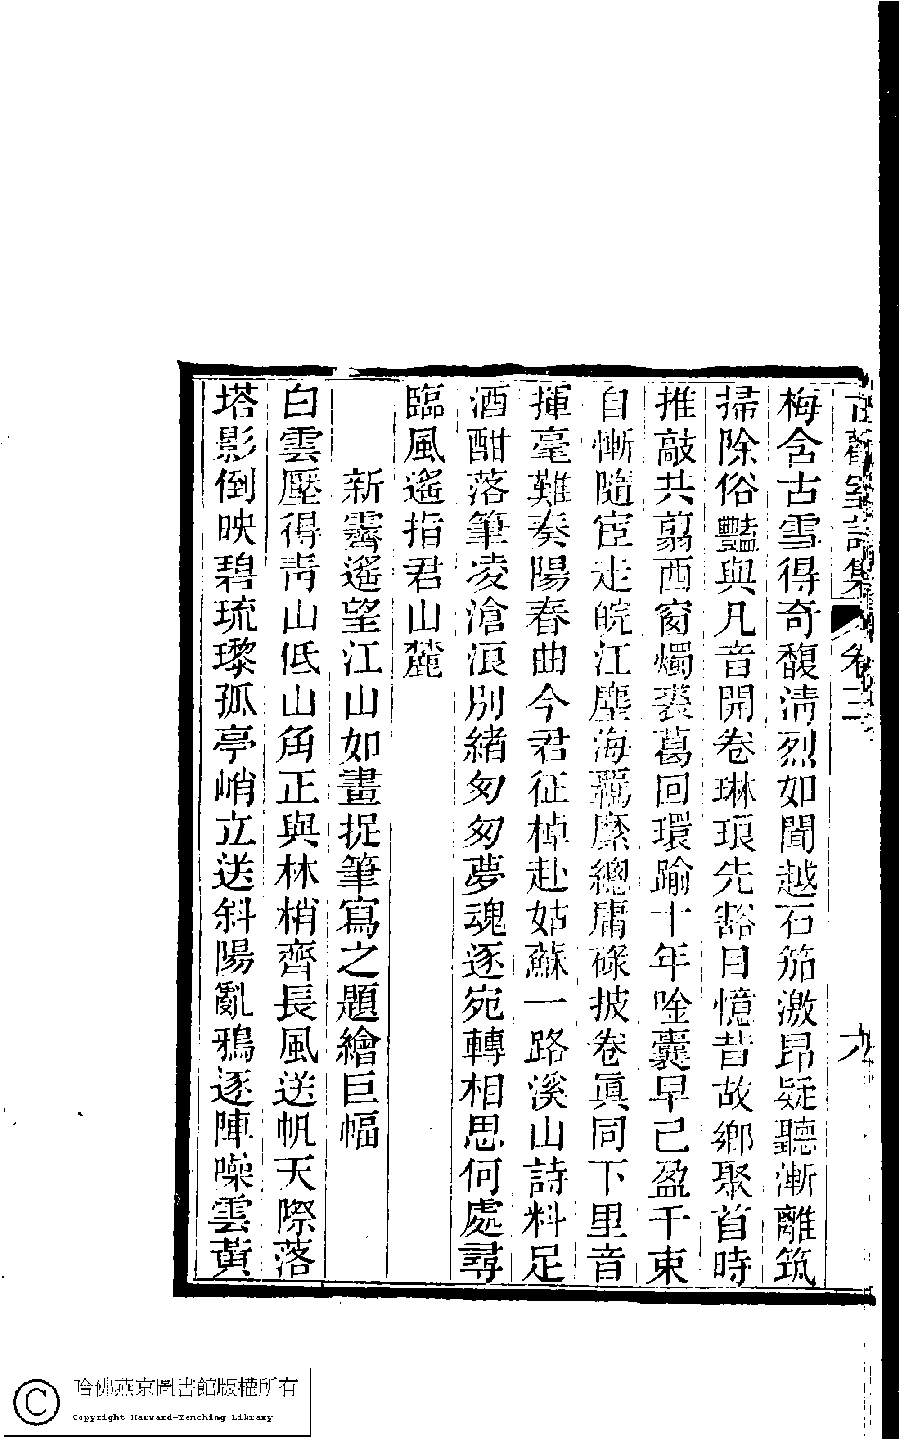 室詩集 卷三 九
梅含古雪得奇馥清烈如聞越石笳激昂疑聽漸離筑
掃除俗豔與凡音開卷琳琅先豁目憶昔故鄉聚首時
推敲共翦西窗燭裘葛回環踰十年唫囊早已盈千束
自慚隨宦走皖江塵海羈縻總庸碌披卷眞同下里音
揮毫難奏陽春曲今君征棹赴姑蘇一路溪山詩料足
酒酣落筆凌滄浪別緒匆匆夢魂逐宛轉相思何處尋
臨風遙指君山麓
新霽遙望江山如畫捉筆寫之題繪巨幅
白雲壓得靑山低山角正與林梢齊長風送帆天際落
塔影倒映碧琉瓈孤亭峭立送斜陽亂鴉逐陣噪雲黃
哈佛燕京圖書館版權所有
Copyright Harvard-Yenching Library